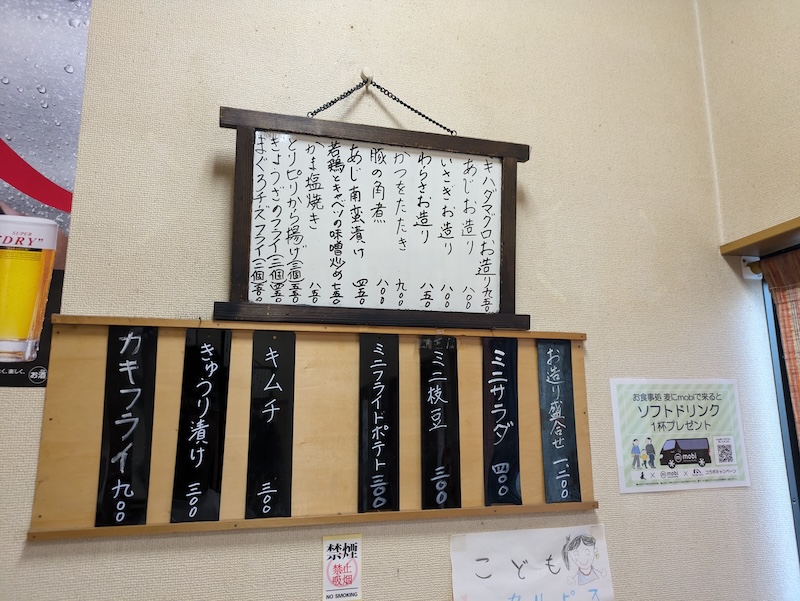 キハダマグロお造り 九五〇
あじお造り 八〇〇
いさぎお造り 八〇〇
わらさお造り 八五〇
かつをたたき 九〇〇
豚の角煮 八〇〇
あじ南蛮漬け 四五〇
若鶏とキャベツの味噌炒め 七五〇
かま塩焼き 八五〇
とりピリから揚げ(三個)五五〇
ぎょうざのフライ(三個)四五〇
まぐろチーズフライ(二個)五〇〇
お造り盛合せ 一、二〇〇
ミニサラダ 四〇〇
ミニ枝豆 三〇〇
ミニフライドポテト 三〇〇
キムチ 三〇〇
きゅうり漬け 三〇〇
カキフライ 九〇〇
SUPER
"DRY"
お酒
お食事処 麦にmobiで来ると
ソフトドリンク
1杯プレゼント
mobi
× mobi × コラボキャンペーン
禁煙
禁止
吸烟
NO SMOKING
こども
カルピス